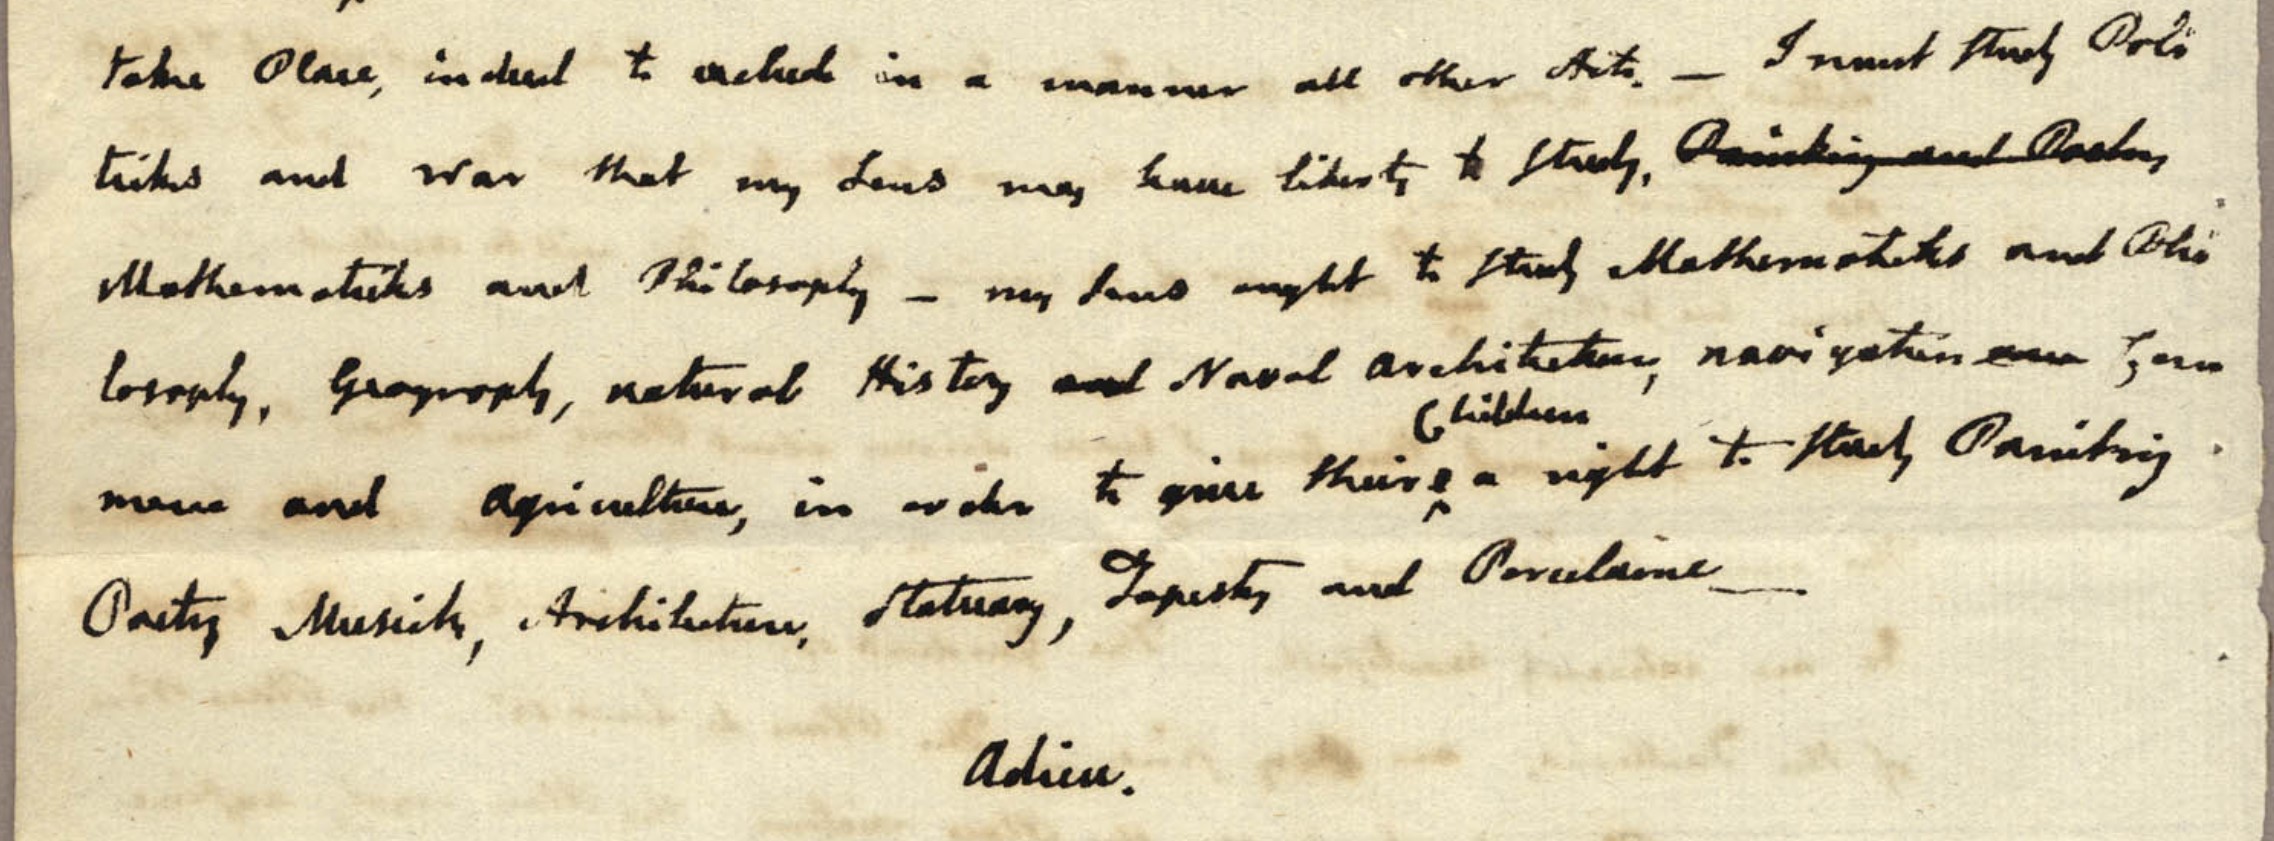 take Place, indeed to exclude in a manner all other Arts. — I must study Poli
ticks and War that my sons may have liberty to study, Painting and Poetry
Mathematicks and Philosophy — my sons ought to study Mathematicks and Phi
losophy, Geography, natural History and Naval Architecture, navigation and Com
merce and Agriculture, in order to give their Children a right to study Painting
Poetry Musick, Architecture, Statuary, Tapestry and Porcelaine —
Adieu.